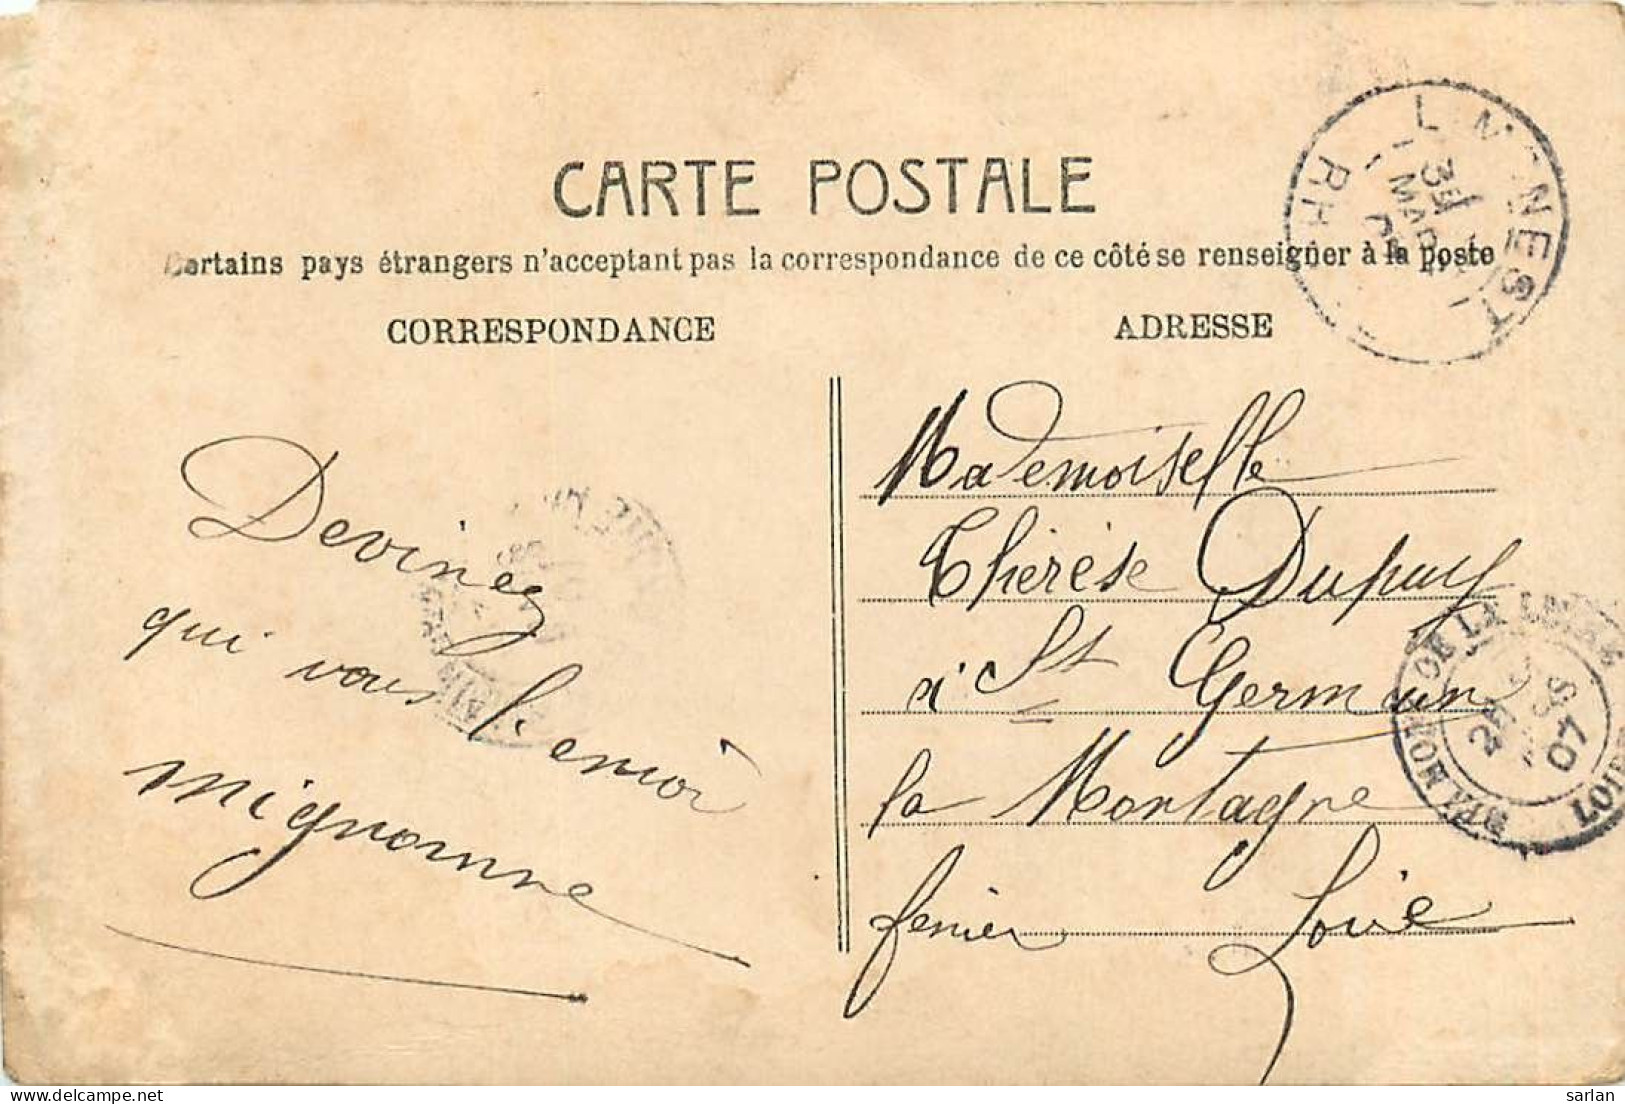 CARTE POSTALE
Certains pays étrangers n'acceptant pas la correspondance de ce côté se renseigner à la poste
CORRESPONDANCE
ADRESSE
Devinez
qui vous l'envoi
mignonne
Mademoiselle
Thérèse Dupuy
à St Germain
la Montagne
Loire
MAR
DE LA LOIRE
07
LOIRE
delcampe.net
sarlan